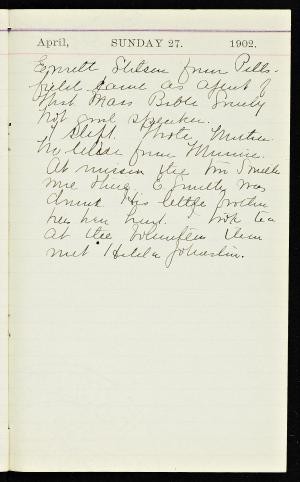 April, SUNDAY 27. 1902.
Emmett Stetson from Pitts-
field came as agent of
that Mass Bible Society
Not good speaker.
I slept. Wrote Mother.
No letter from Minnie.
At mission the two Smith
were there. E. Smith was
drunk His little brother
has been hurt. I took tea
at the
met Hilda Johnston.